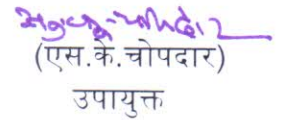 (एस.के.चोपदार)
उपायुक्त